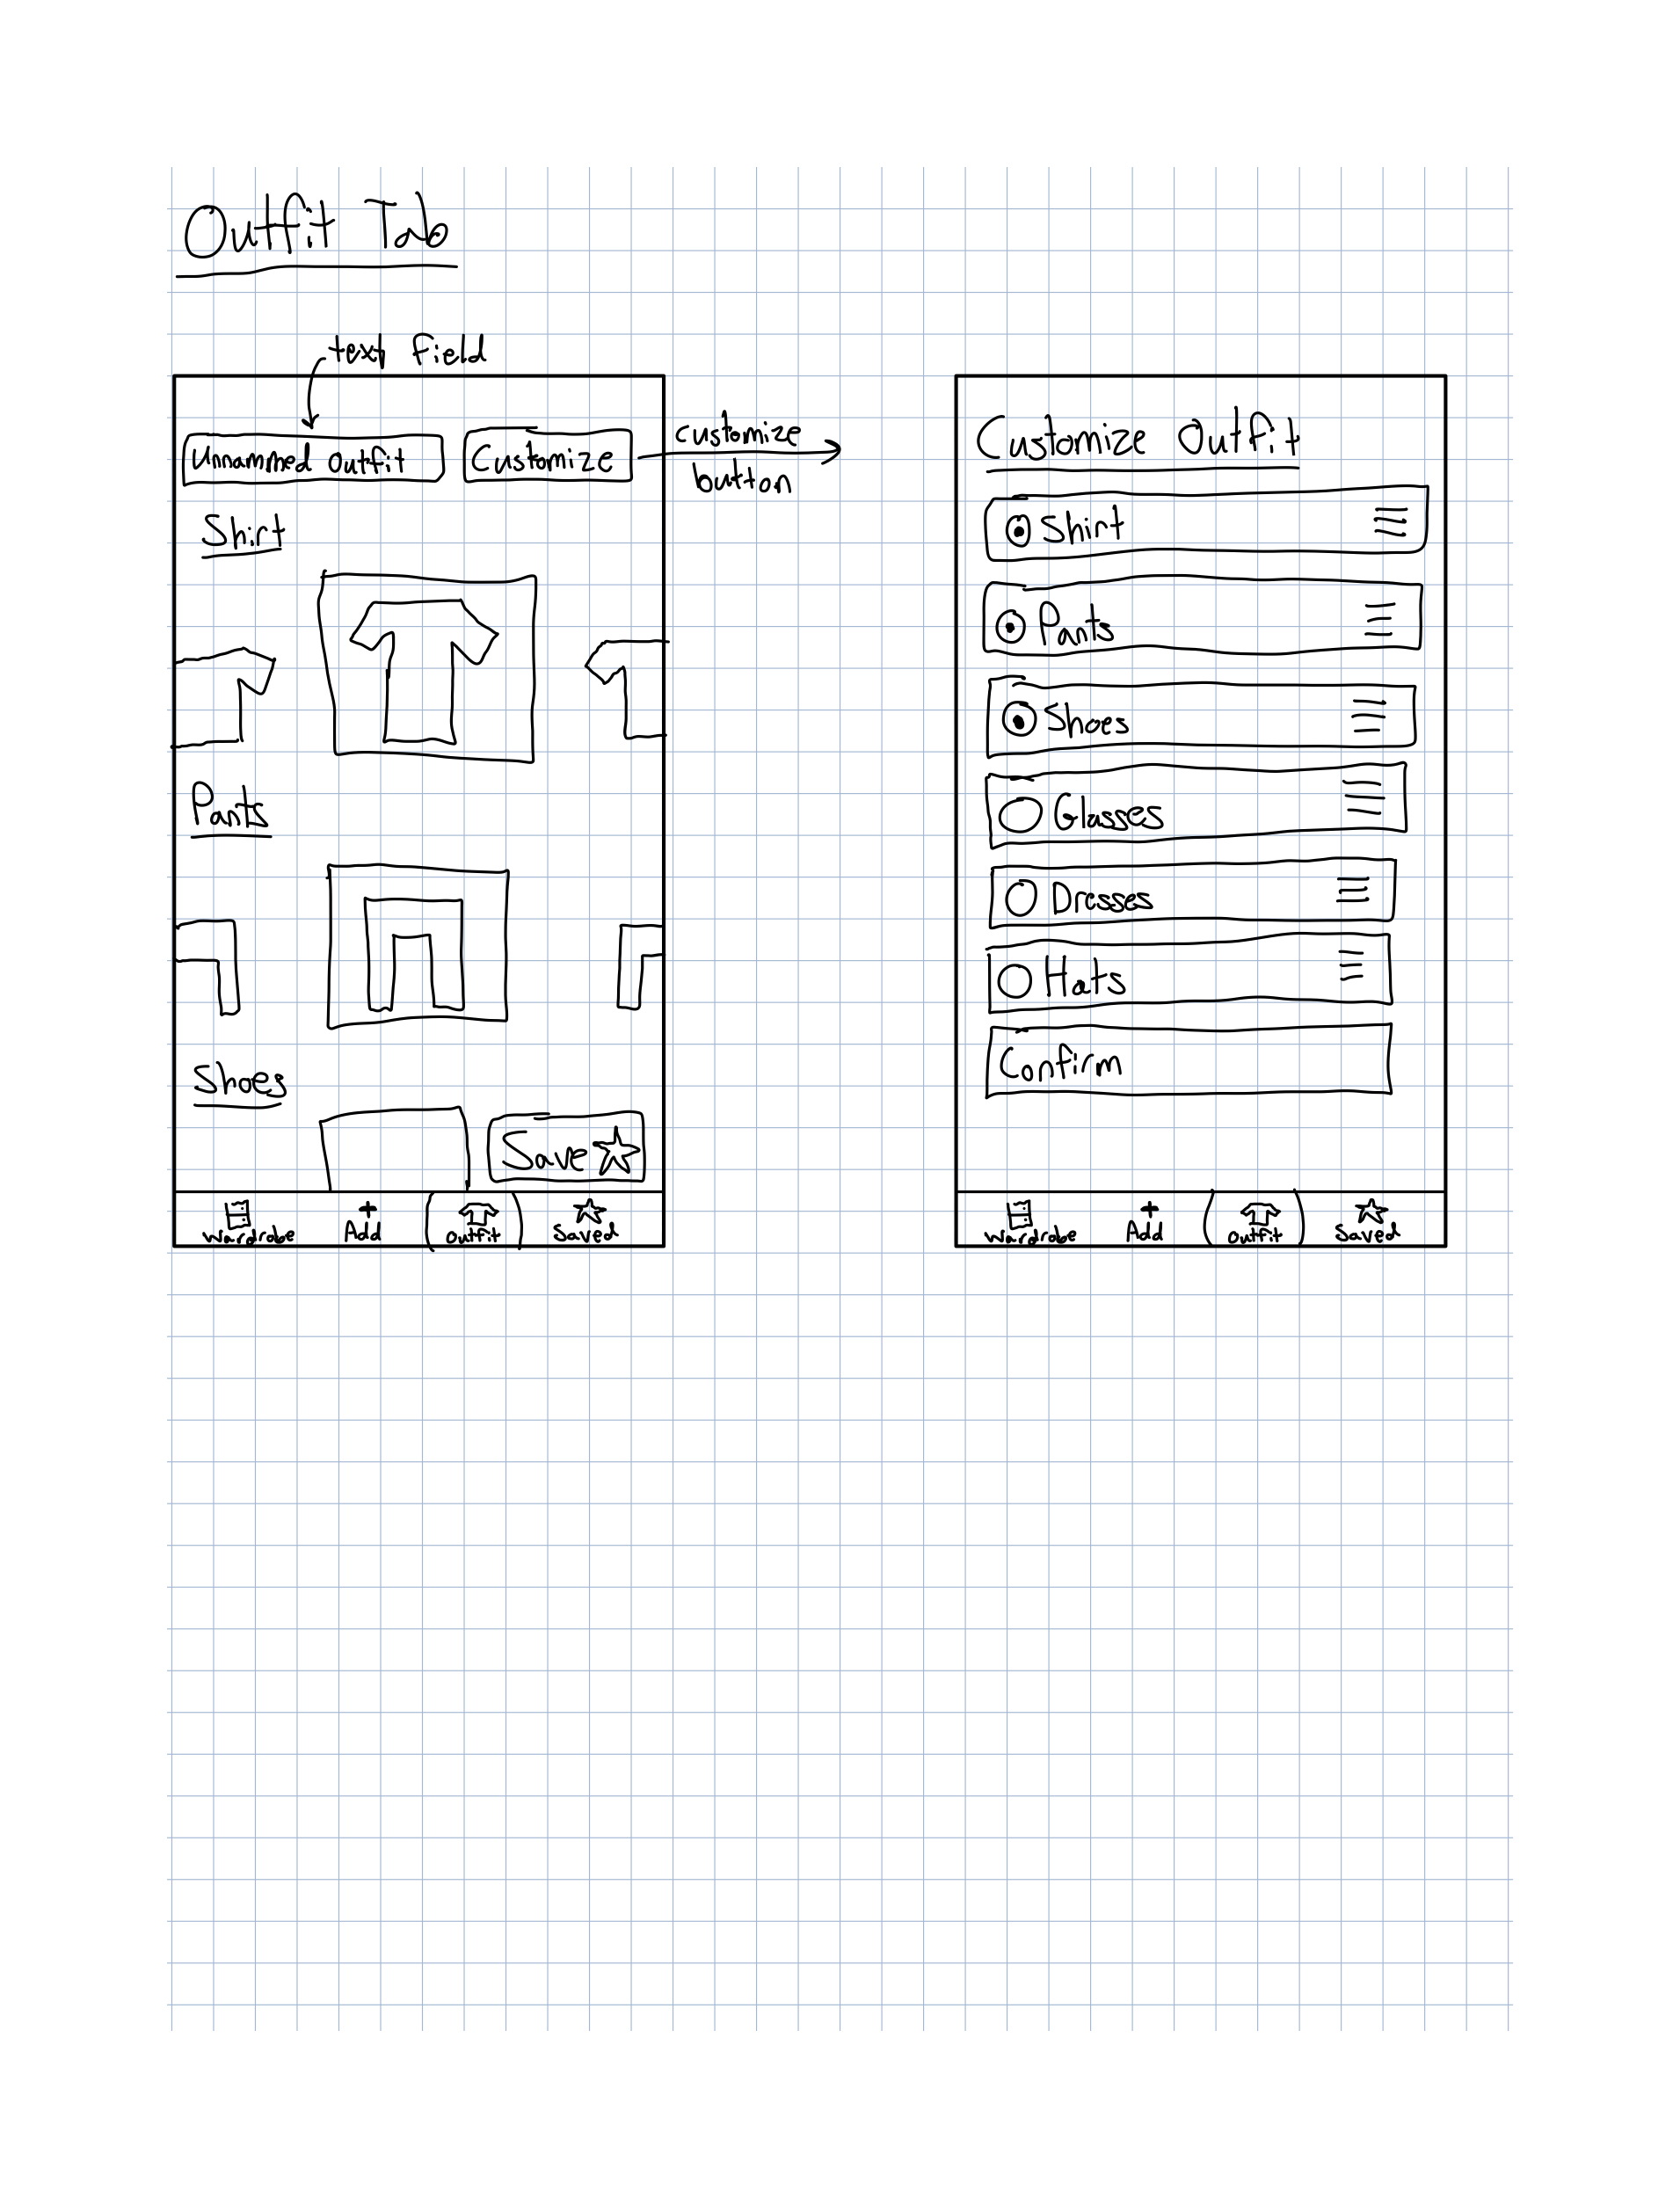 Outfit Tab
text field
Unnammed Outfit
Customize
customize
button
Shirt
Pants
Shoes
Save
Wardrobe
Add
Outfit
Saved
Customize Outfit
Shirt
Pants
Shoes
Glasses
Dresses
Hats
Confirm
Wardrobe
Add
Outfit
Saved